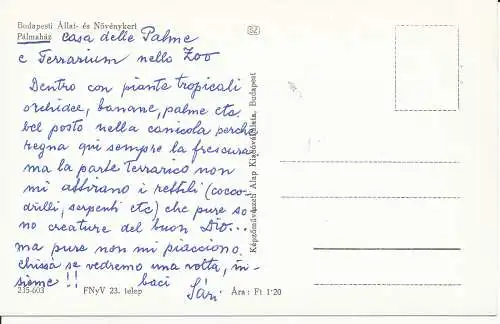 Budapesti Állat- és Növénykert
Pálmaház casa delle Palme
e Terrarium nello Zoo
SZ
Dentro con piante tropicali
orchidee, banane, palme etc.
bel posto nella canicola perchè
regna qui sempre la frescura
ma la parte Terrarico non
mi attirano i rettili (cocco-
drilli, serpenti etc) che pure so-
no creature del buon Dio...
ma pure non mi piacciono.
chissà se vedremo una volta, in-
sieme!! baci
Sári
215-603 FNyV 23. telep Ára: Ft 1·20
Képzőművészeti Alap Kiadóvállalata, Budapest